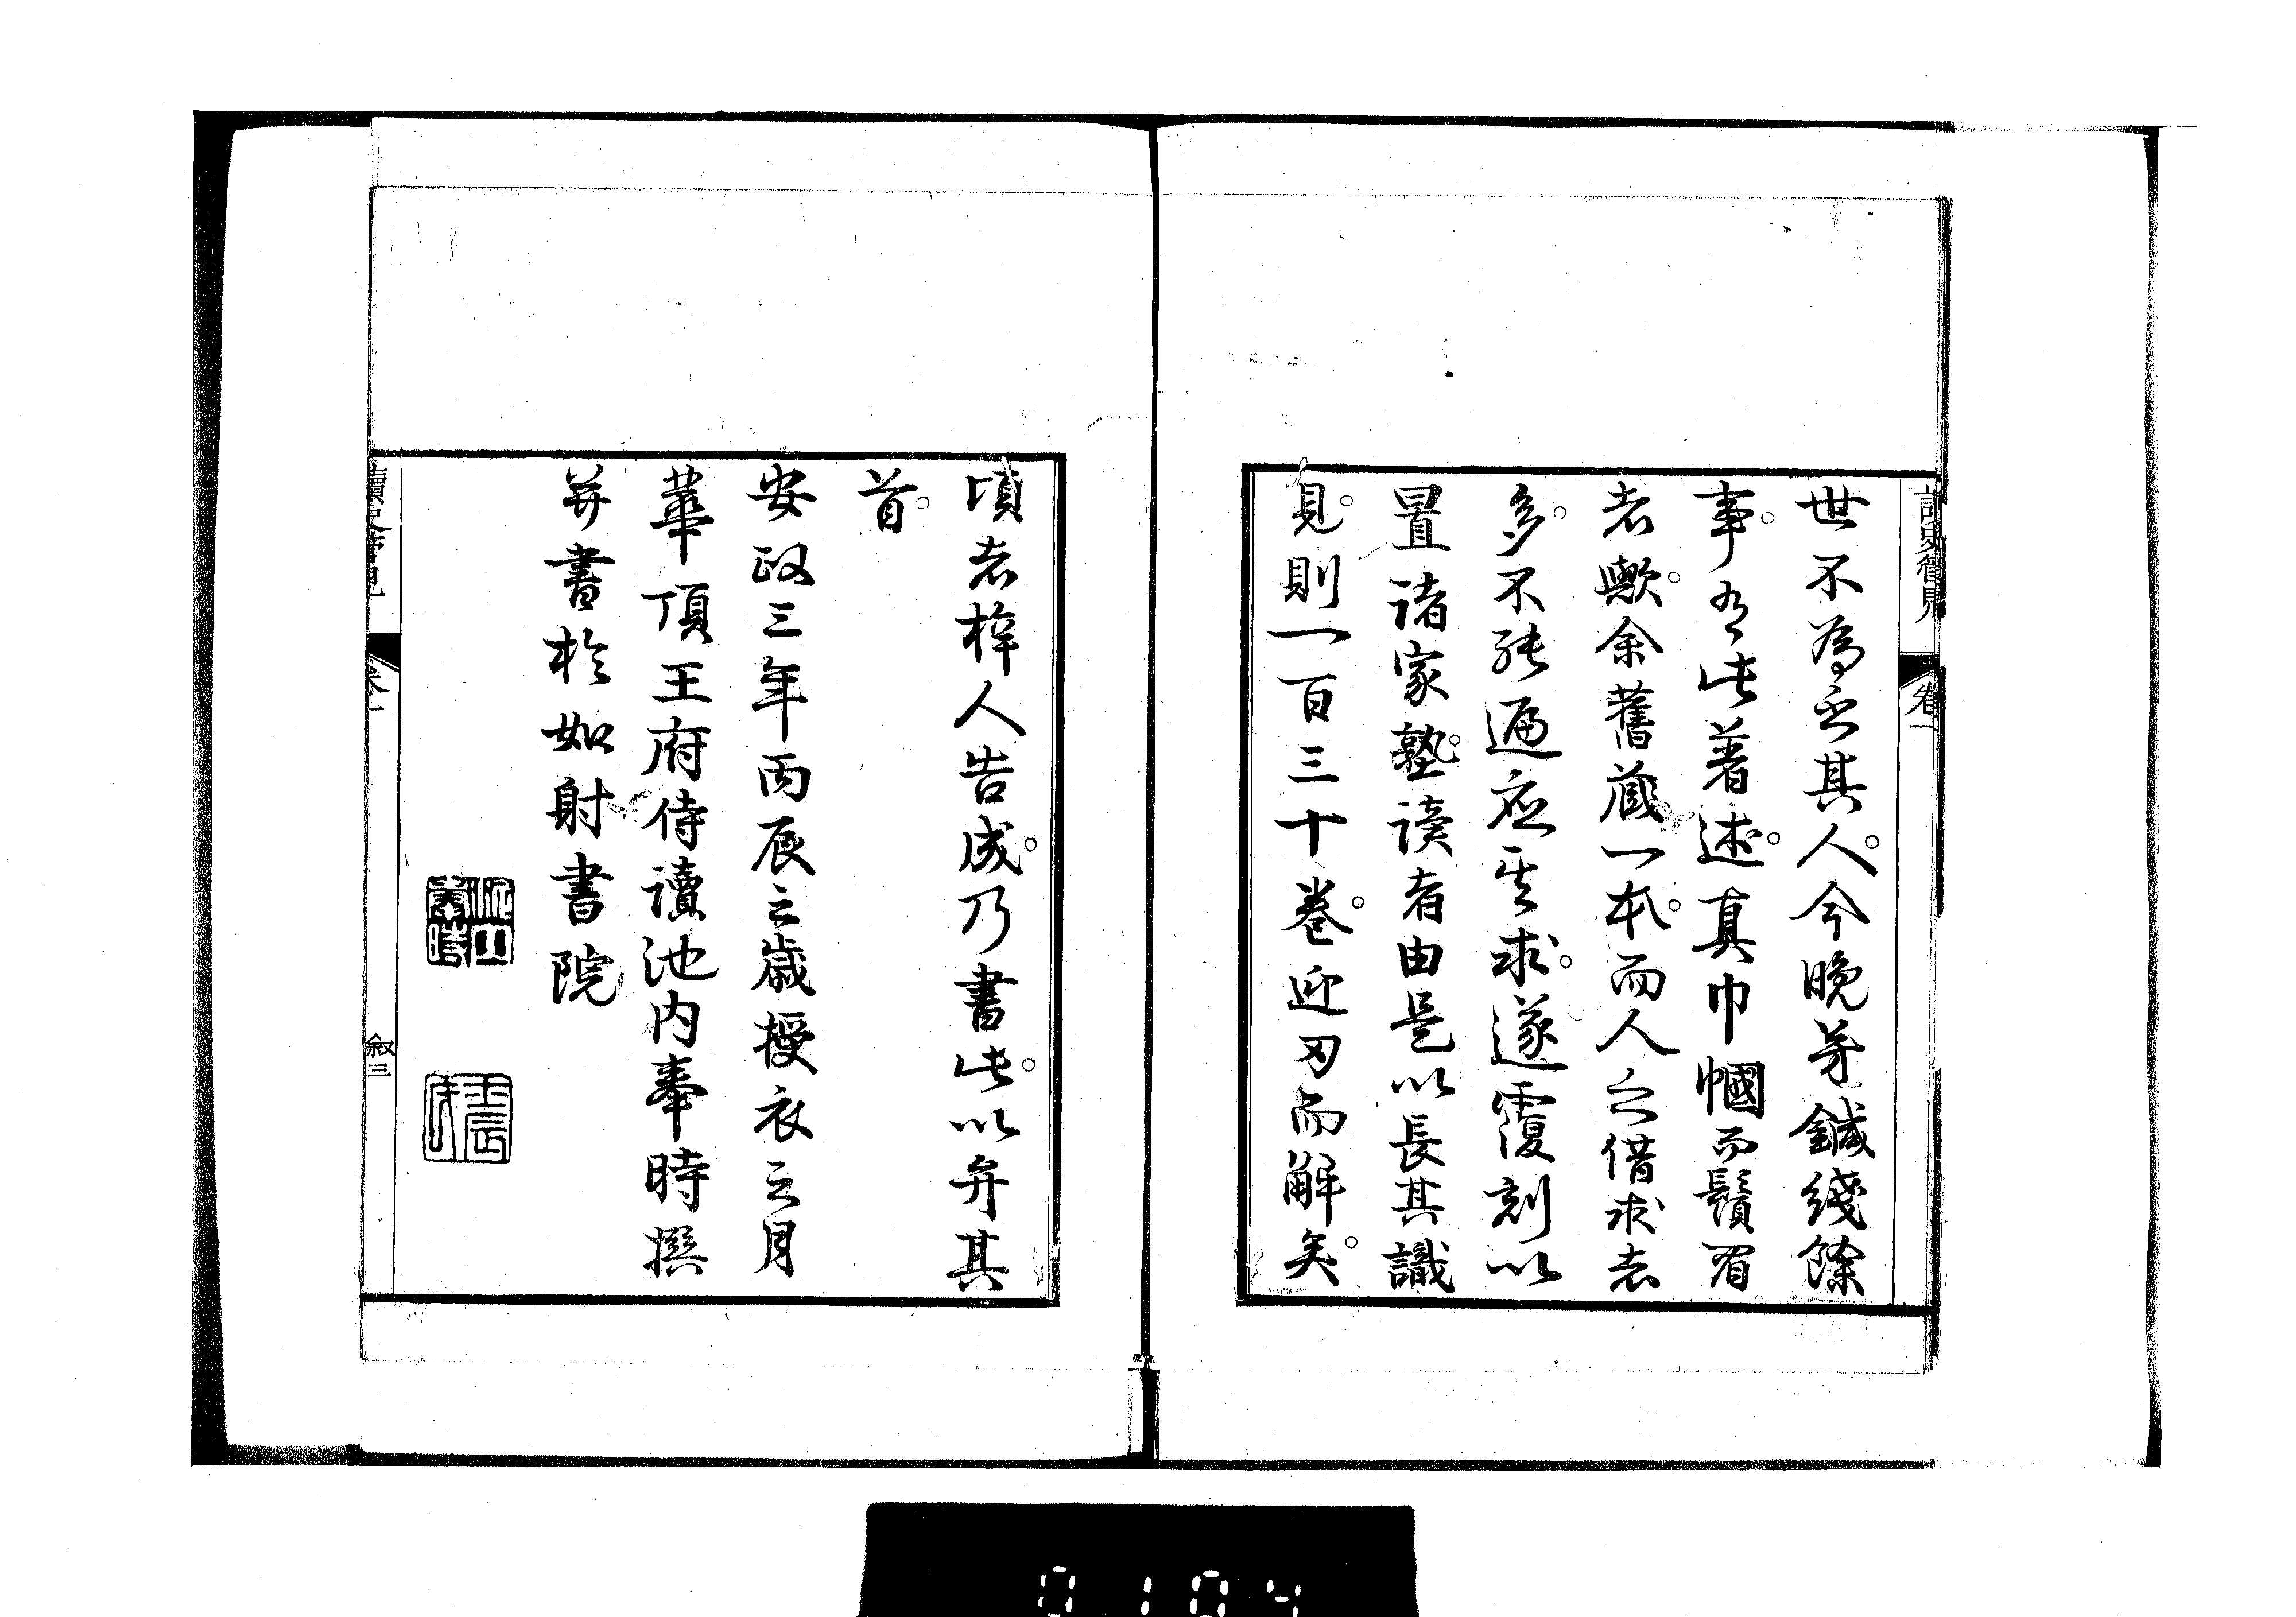 讀史管見
卷一
世不為乏其人。今晚芳鍼綫餘
事。有此著述。真巾幗而鬚眉
者歟。余舊藏一本。而人之借求者
多。不能遍應其求。遂覆刻以
置諸家塾。讀者由是以長其識
見。則一百三十卷。迎刃而解矣。
頃者梓人告成。乃書此。以弁其
首。
安政三年丙辰之歲授衣之月
華頂王府侍讀池內奉時撰
并書於如射書院
讀史管見
卷一
叙三
0104